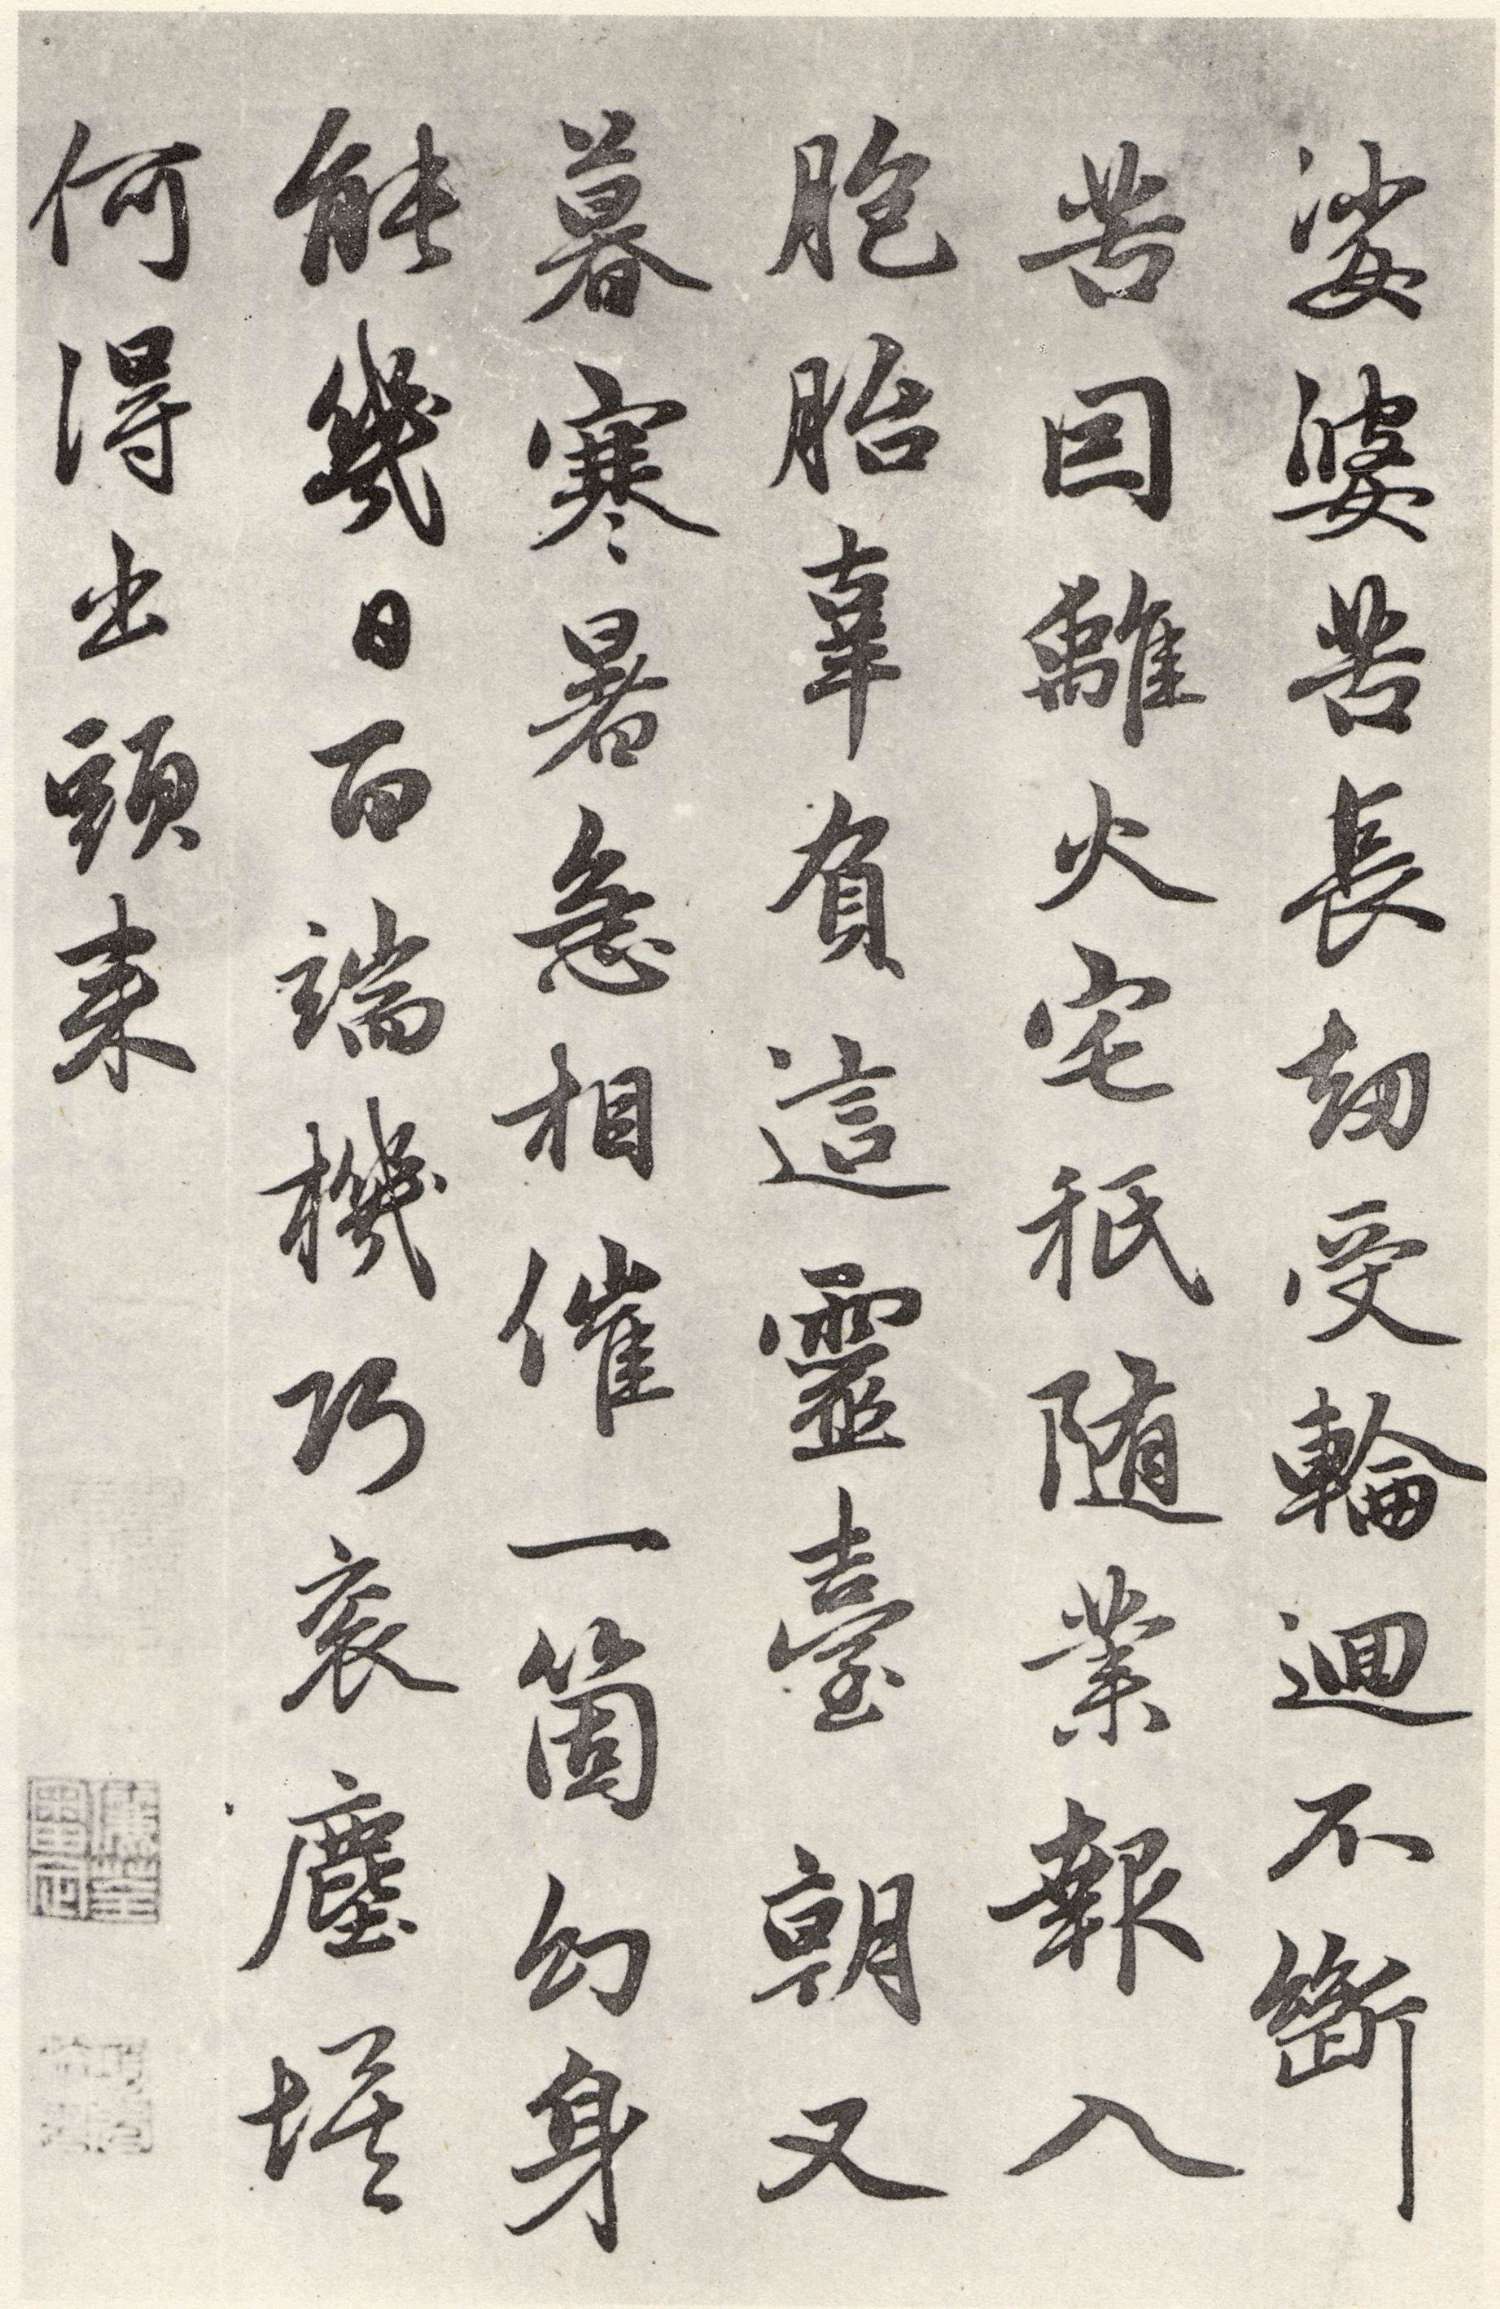 娑婆苦長劫受輪迴不斷
苦因離火宅秖隨業報入
胞胎辜負這靈臺朝又
暮寒暑急相催一箇幻身
能幾日百端機巧衮塵埃
何得出頭来